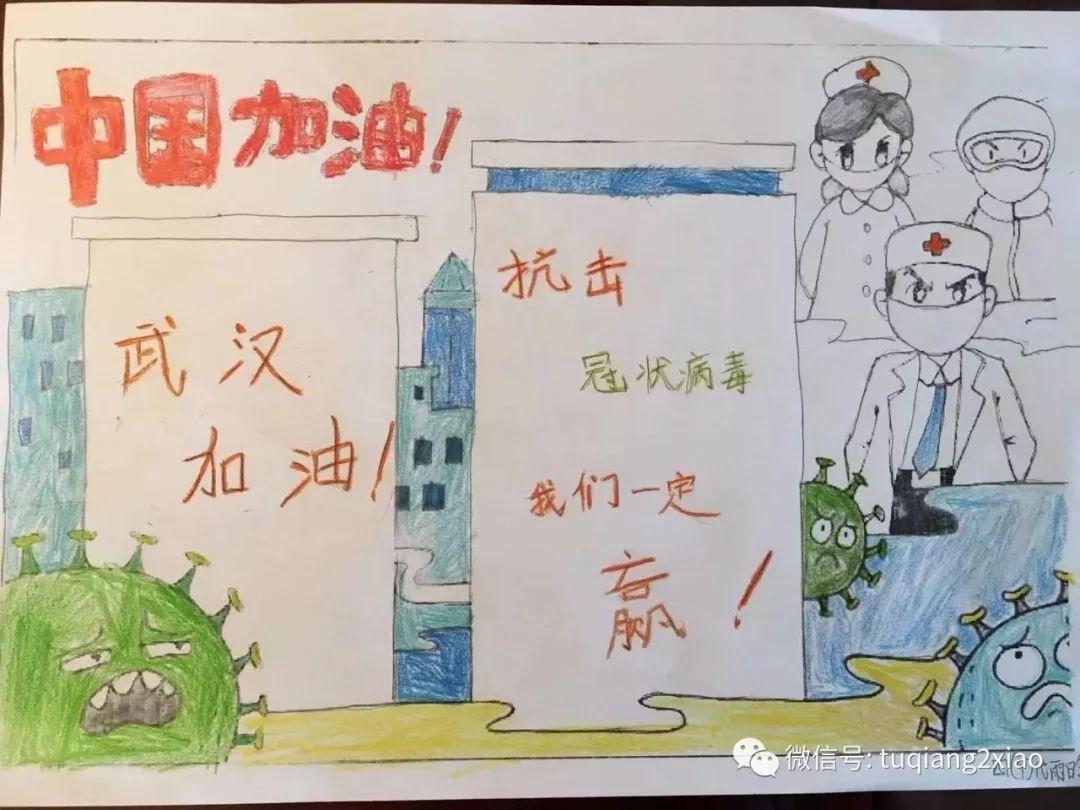 中国加油!
武汉
加油!
抗击
冠状病毒
我们一定
赢!
微信号: tuqiang2xiao